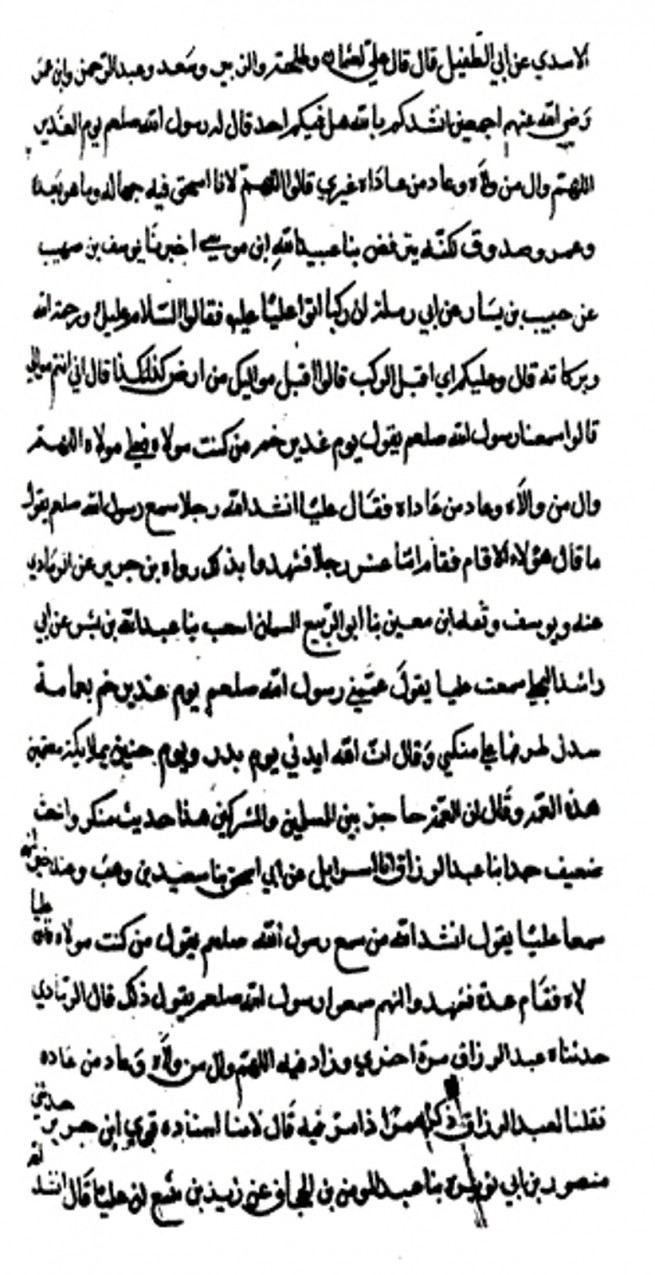 الاسدي عن ابي الطفيل قال قال علي لعثمان وطلحة والزبير وسعد وعبد الرحمن وابن عمر
رضي الله عنهم اجمعين انشدكم بالله هل فيكم احد قال له رسول الله صلعم يوم الغدير
اللهم وال من ولاه وعاد من عاداه غيري قالوا اللهم لا فاسحق فيه جهالة وباهر بعد
وعمر وصدوق لكنه يترفض بنا عبيد الله ابن موسى اخبرنا يوسف بن صهيب
عن حبيب بن يسار عن ابي رملة ان ركبا اتوا عليا عليه فقالوا السلام عليك ورحمة الله
وبركاته قال وعليكم اي اقبل الركب قالوا اقبل مواليك من ارض كذا كذا قال اني انتم موالي
قالوا سمعنا رسول الله صلعم يقول يوم غدير خم من كنت مولاه فعلي مولاه اللهم
وال من والاه وعاد من عاداه فقال عليا انشد الله رجلا سمع رسول الله صلعم يقول
ما قال هؤلاء الا قام فقام اثنا عشر رجلا فشهدوا بذلك رواه بن جرير عن الرمادي
عنه ويوسف وثقه ابن معين بنا ابو الربيع السمان اسحب بنا عبد الله بن بشر عن ابي
راشد سمعت عليا يقول عممني رسول الله صلعم يوم غدير خم بعمامة
سدل طرفها على منكبي وقال ان الله ايدني يوم بدر ويوم حنين بملايكة معتمين
هذه العمة وقال ان العمة حاجز بين المسلمين والمشركين هذا حديث منكر
ضعيف حدثنا عبد الرزاق انا اسرايل عن ابي اسحق بنا سعيد بن وهب وعبد خير انهما
سمعا عليا يقول انشد الله من سمع رسول الله صلعم يقول من كنت مولاه عليا
لاه فقام عدة فشهدوا انهم سمعوا رسول الله صلعم يقول ذلك قال الرمادي
حدثناه عبد الرزاق مرة اخري وزاد فيه اللهم وال من ولاه وعاد من عاده
فقلنا لعبد الرزاق قال لاهنا اسناده قوي ابن جرير حدثني
منصور بن ابي نويرة بنا عبد المومن بن عن زيد بن يثيع ان عليا قال انشد الله